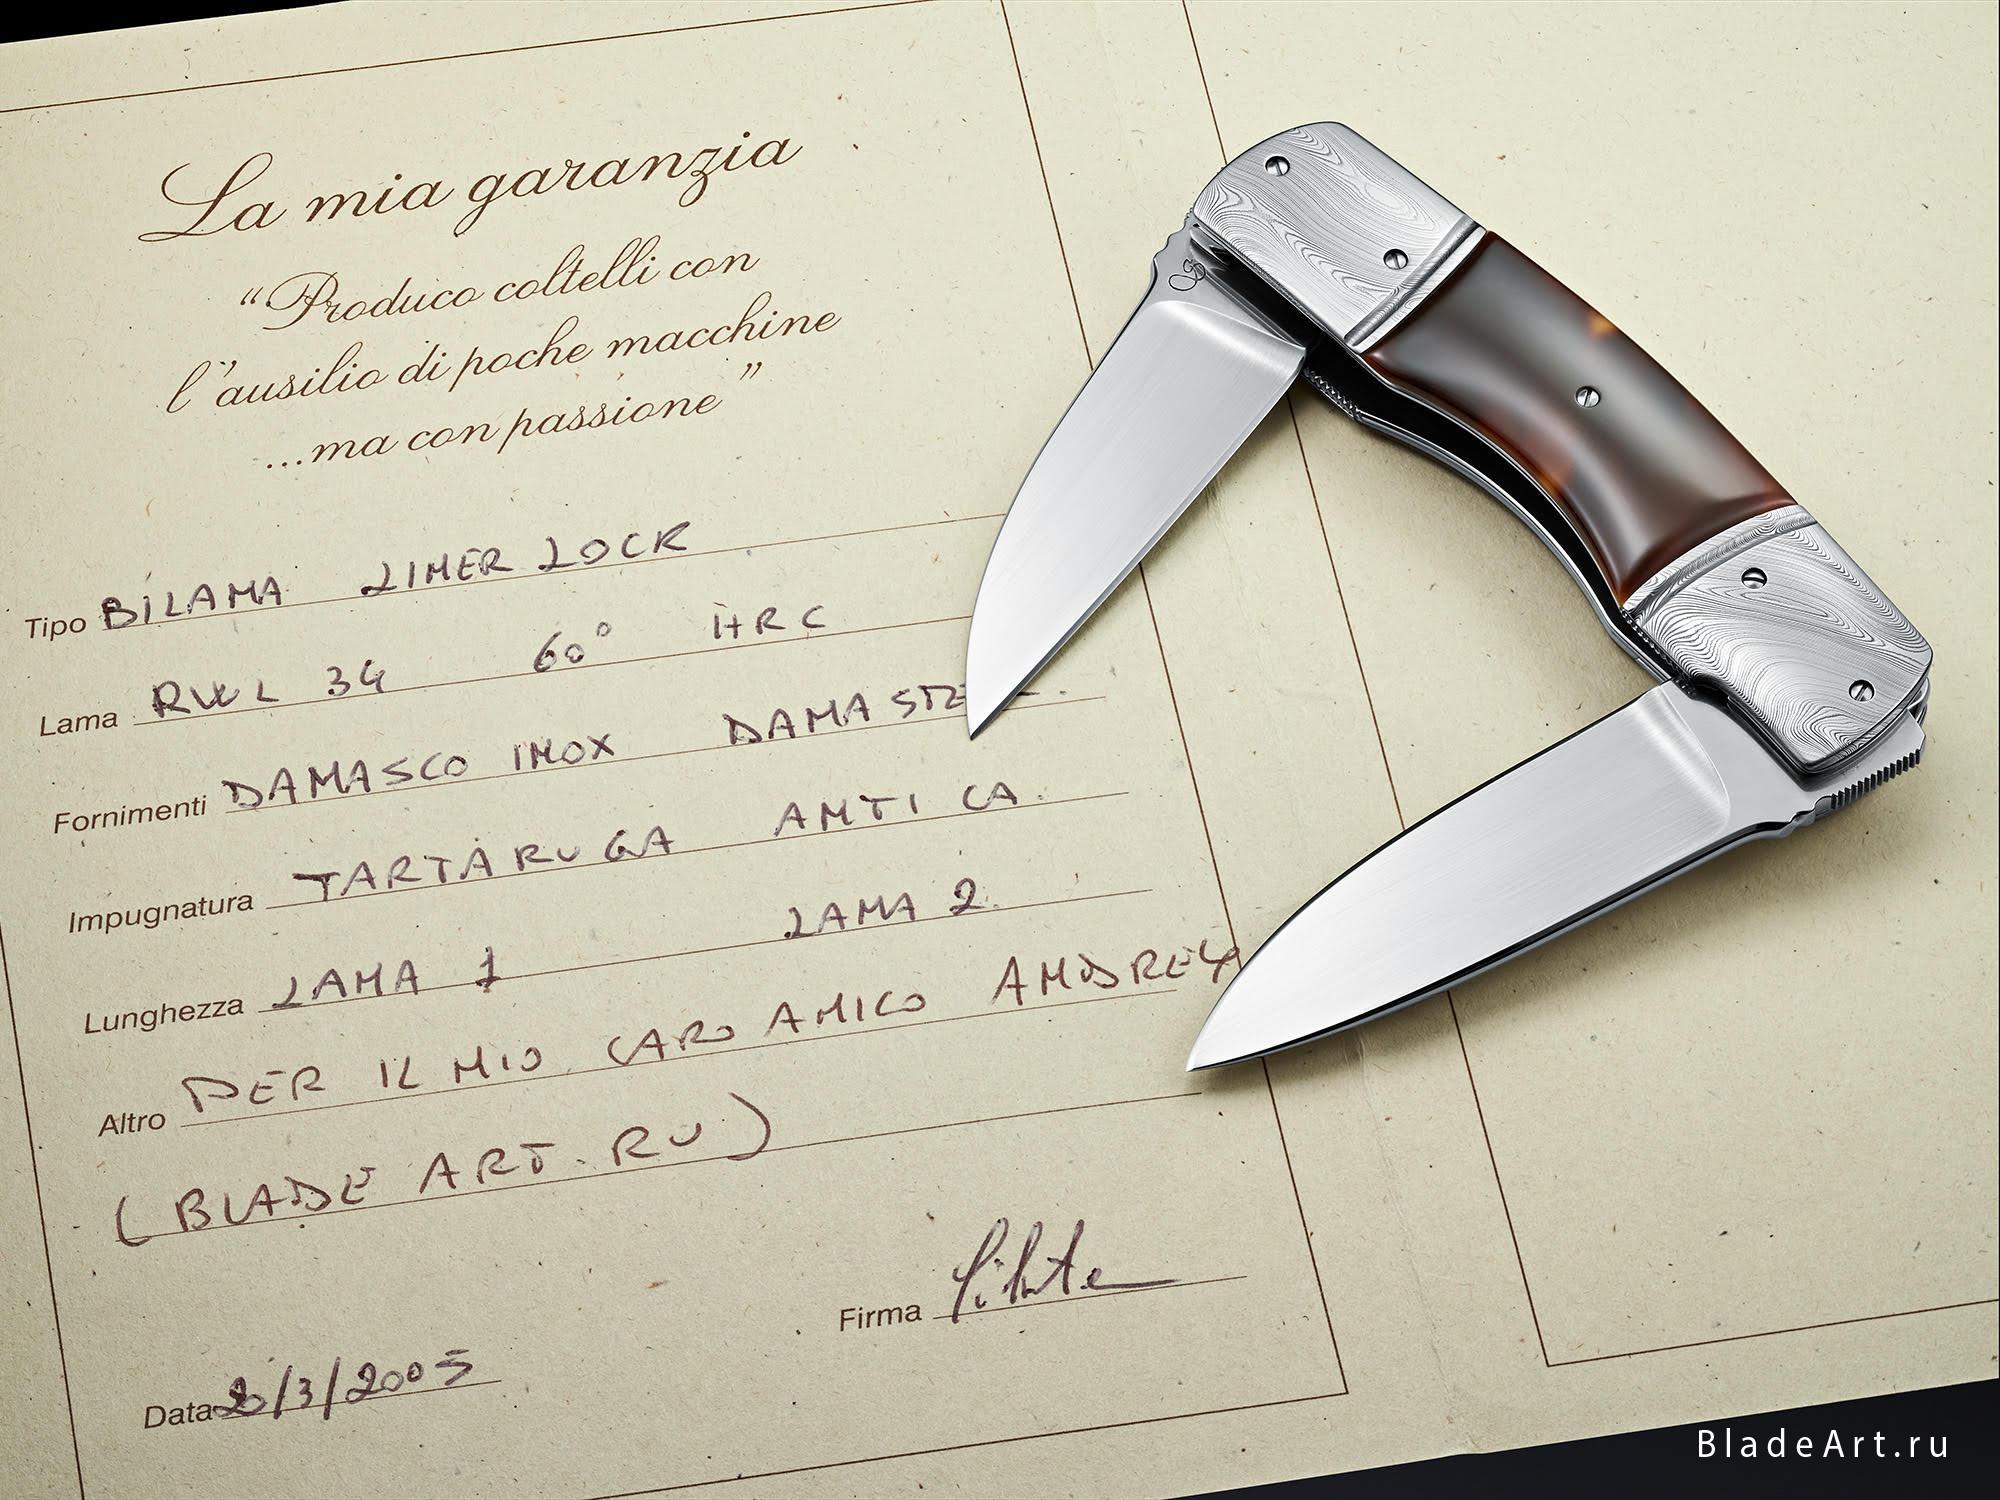 La mia garanzia
“Produco coltelli con
l’ausilio di poche macchine
...ma con passione”
Tipo BILAMA LINER LOCK
Lama RWL 34 60° HRC
Fornimenti DAMASCO INOX
Impugnatura TARTARUGA ANTICA.
Lunghezza LAMA 1 LAMA 2.
Altro PER IL MIO CARO AMICO ANDREY
(BLADE ART.RU)
Firma
Data 20/3/2005
BladeArt.ru